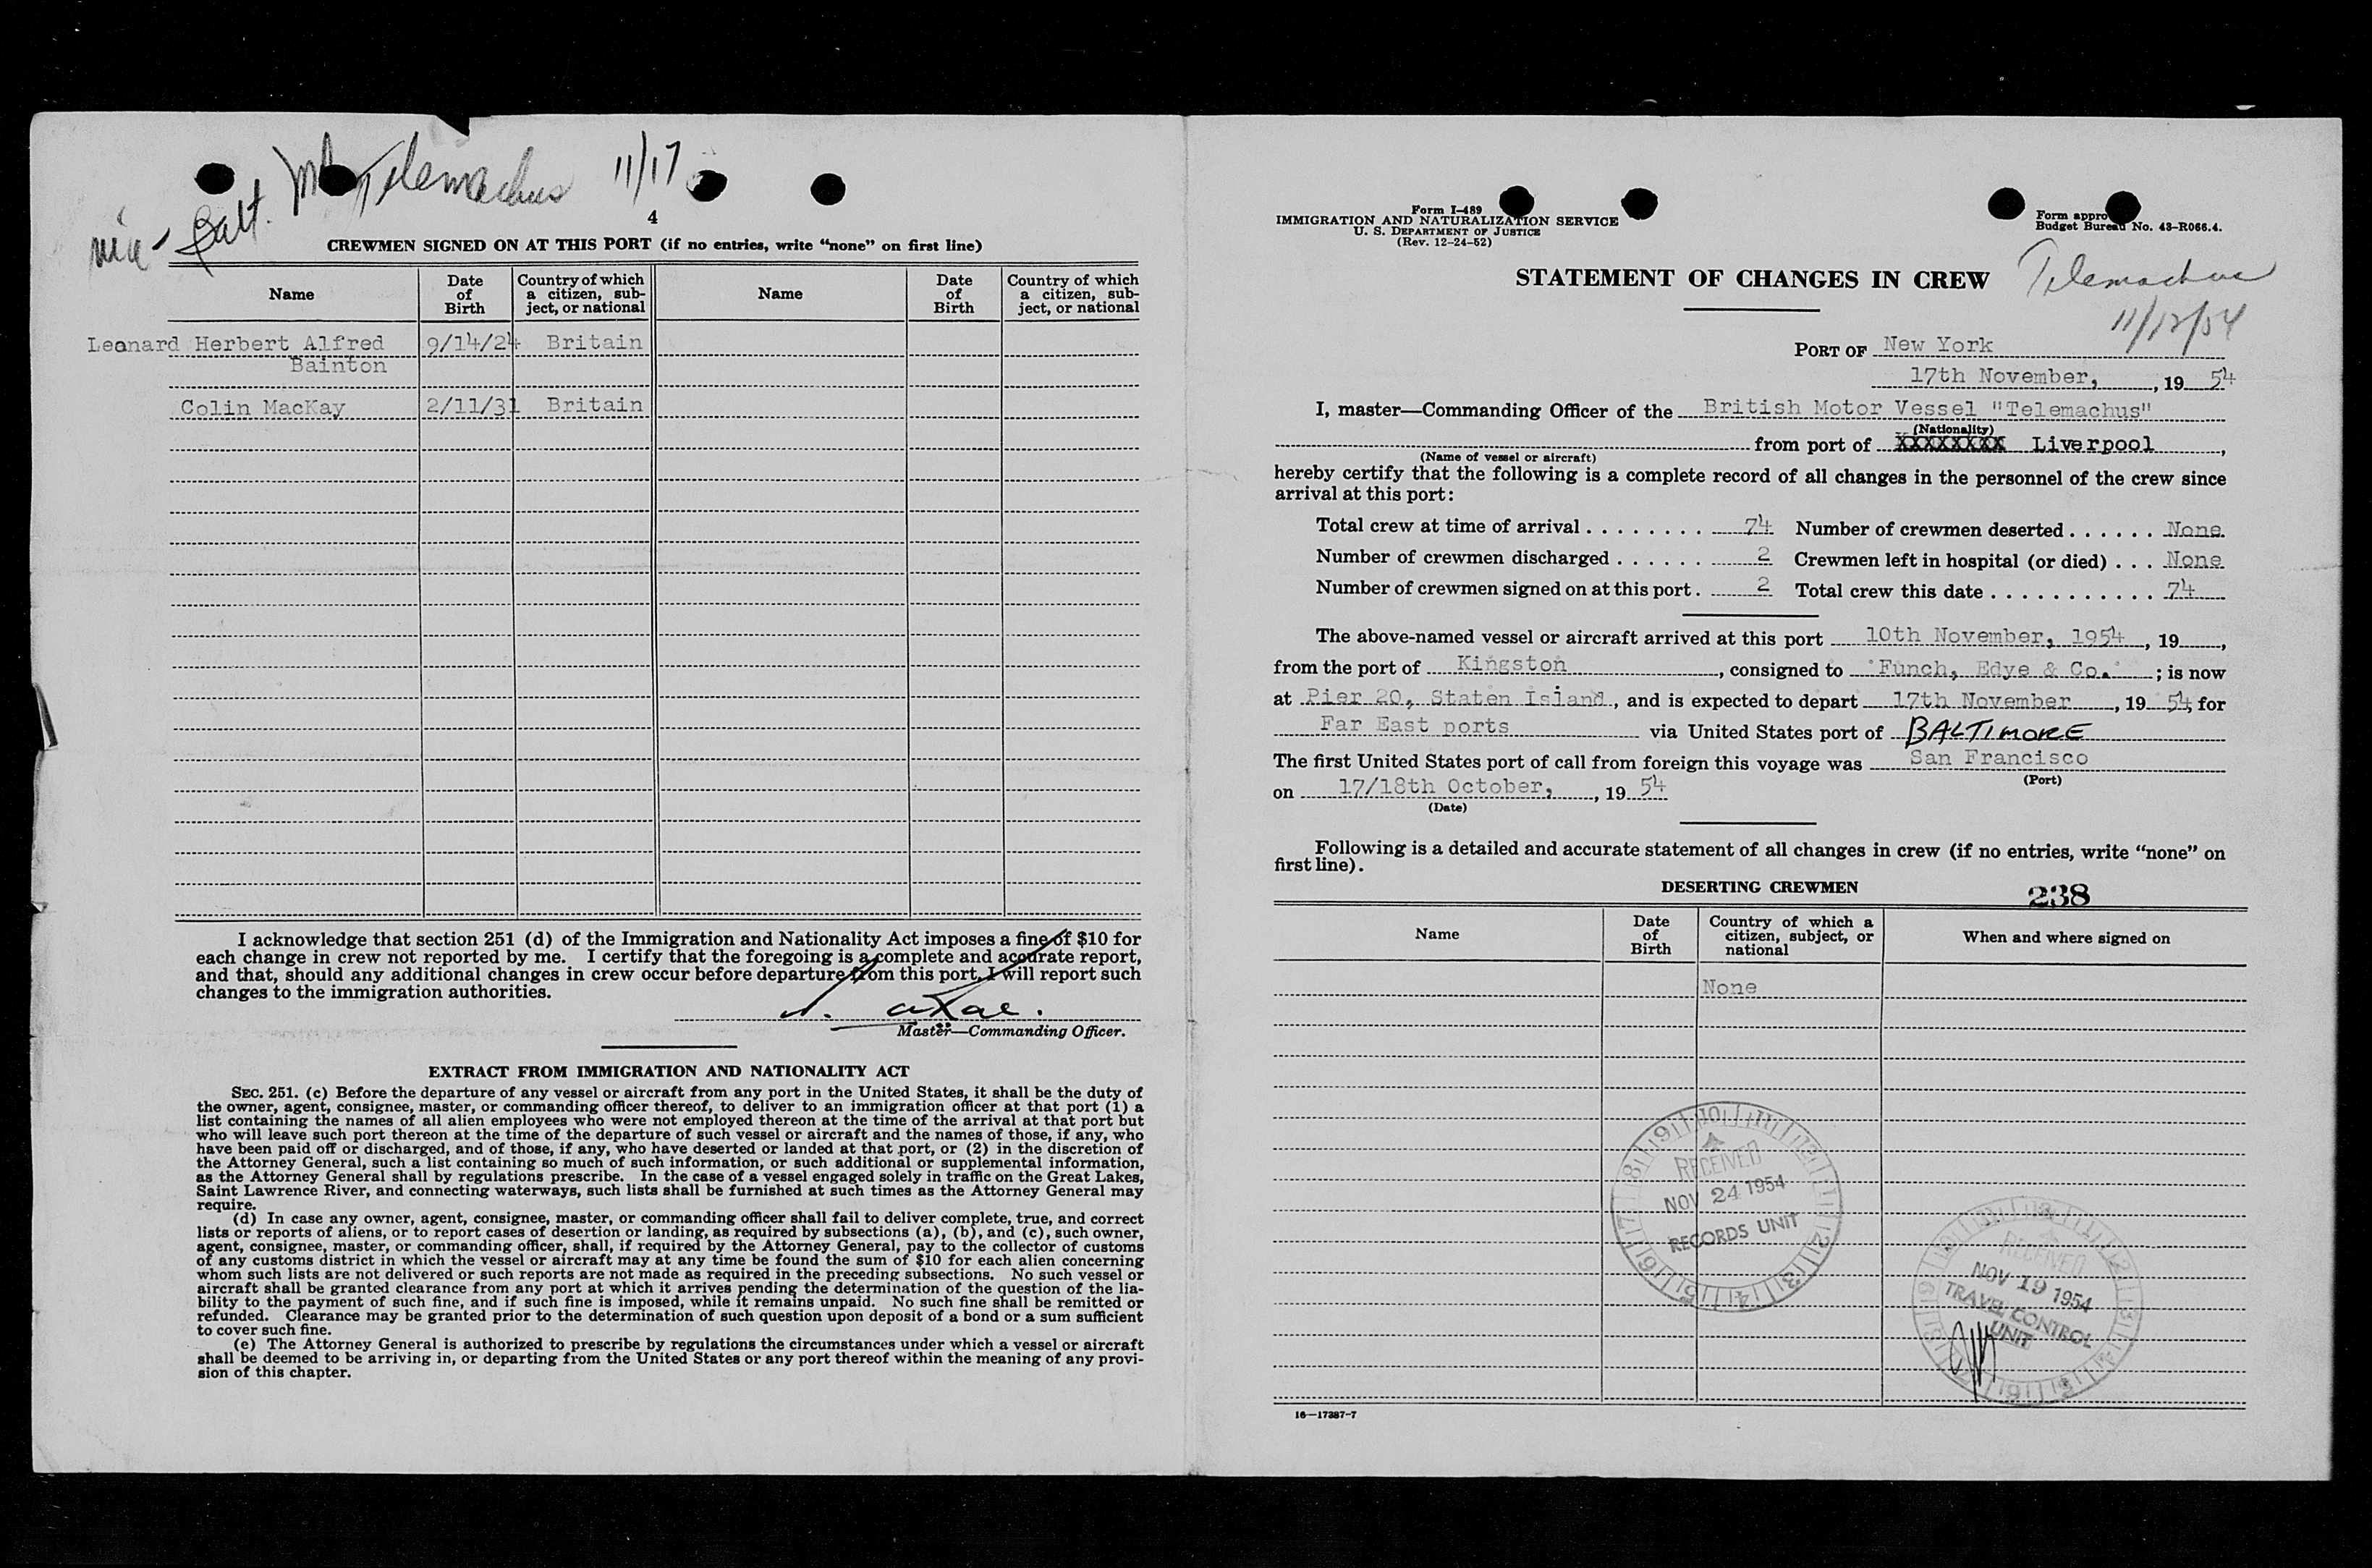 via - Balt. MV Telemachus 11/17
4
CREWMEN SIGNED ON AT THIS PORT (if no entries, write “none” on first line)
Name
Date of Birth
Country of which a citizen, sub-ject, or national
Name
Date of Birth
Country of which a citizen, sub-ject, or national
Leonard Herbert Alfred 9/14/24 Britain
Bainton
Colin MacKay 2/11/31 Britain
I acknowledge that section 251 (d) of the Immigration and Nationality Act imposes a fine of $10 for
each change in crew not reported by me. I certify that the foregoing is a complete and accurate report,
and that, should any additional changes in crew occur before departure from this port, I will report such
changes to the immigration authorities.
Master—Commanding Officer.
EXTRACT FROM IMMIGRATION AND NATIONALITY ACT
SEC. 251. (c) Before the departure of any vessel or aircraft from any port in the United States, it shall be the duty of
the owner, agent, consignee, master, or commanding officer thereof, to deliver to an immigration officer at that port (1) a
list containing the names of all alien employees who were not employed thereon at the time of the arrival at that port but
who will leave such port thereon at the time of the departure of such vessel or aircraft and the names of those, if any, who
have been paid off or discharged, and of those, if any, who have deserted or landed at that port, or (2) in the discretion of
the Attorney General, such a list containing so much of such information, or such additional or supplemental information,
as the Attorney General shall by regulations prescribe. In the case of a vessel engaged solely in traffic on the Great Lakes,
Saint Lawrence River, and connecting waterways, such lists shall be furnished at such times as the Attorney General may
require.
(d) In case any owner, agent, consignee, master, or commanding officer shall fail to deliver complete, true, and correct
lists or reports of aliens, or to report cases of desertion or landing, as required by subsections (a), (b), and (c), such owner,
agent, consignee, master, or commanding officer, shall, if required by the Attorney General, pay to the collector of customs
of any customs district in which the vessel or aircraft may at any time be found the sum of $10 for each alien concerning
whom such lists are not delivered or such reports are not made as required in the preceding subsections. No such vessel or
aircraft shall be granted clearance from any port at which it arrives pending the determination of the question of the lia-
bility to the payment of such fine, and if such fine is imposed, while it remains unpaid. No such fine shall be remitted or
refunded. Clearance may be granted prior to the determination of such question upon deposit of a bond or a sum sufficient
to cover such fine.
(e) The Attorney General is authorized to prescribe by regulations the circumstances under which a vessel or aircraft
shall be deemed to be arriving in, or departing from the United States or any port thereof within the meaning of any provi-
sion of this chapter.
Form I-489
IMMIGRATION AND NATURALIZATION SERVICE
U. S. DEPARTMENT OF JUSTICE
(Rev. 12-24-52)
Form appro
Budget Bureau No. 43-R066.4.
STATEMENT OF CHANGES IN CREW
Telemachus
PORT OF New York
17th November, , 19 54
I, master—Commanding Officer of the British Motor Vessel "Telemachus"
(Nationality)
from port of XXXXXXXX Liverpool ,
(Name of vessel or aircraft)
hereby certify that the following is a complete record of all changes in the personnel of the crew since
arrival at this port:
Total crew at time of arrival . . . . . . . . 74 Number of crewmen deserted . . . . . . None
Number of crewmen discharged . . . . . . 2 Crewmen left in hospital (or died) . . . None
Number of crewmen signed on at this port . 2 Total crew this date . . . . . . . . . . . 74
The above-named vessel or aircraft arrived at this port 10th November, 1954 , 19 ,
from the port of Kingston , consigned to Funch, Edye & Co. ; is now
at Pier 20, Staten Island , and is expected to depart 17th November , 19 54, for
Far East ports via United States port of BALTIMORE
The first United States port of call from foreign this voyage was San Francisco
(Port)
on 17/18th October, , 19 54
(Date)
Following is a detailed and accurate statement of all changes in crew (if no entries, write “none” on
first line).
DESERTING CREWMEN
238
Name
Date of Birth
Country of which a citizen, subject, or national
When and where signed on
None
RECEIVED
NOV 24 1954
RECORDS UNIT
RECEIVED
NOV 19 1954
TRAVEL CONTROL
UNIT
16—17387-7